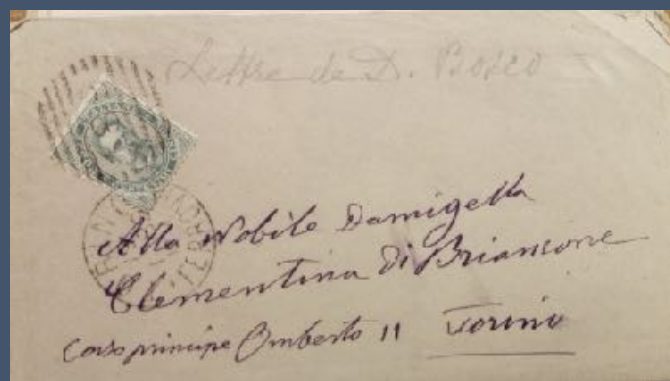 Lettre de D. Bosco
Alla Nobile Damigella
Clementina di Briansone
Corso principe Umberto 11 Torino